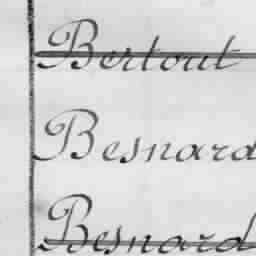 Bertout
Besnard
Besnard